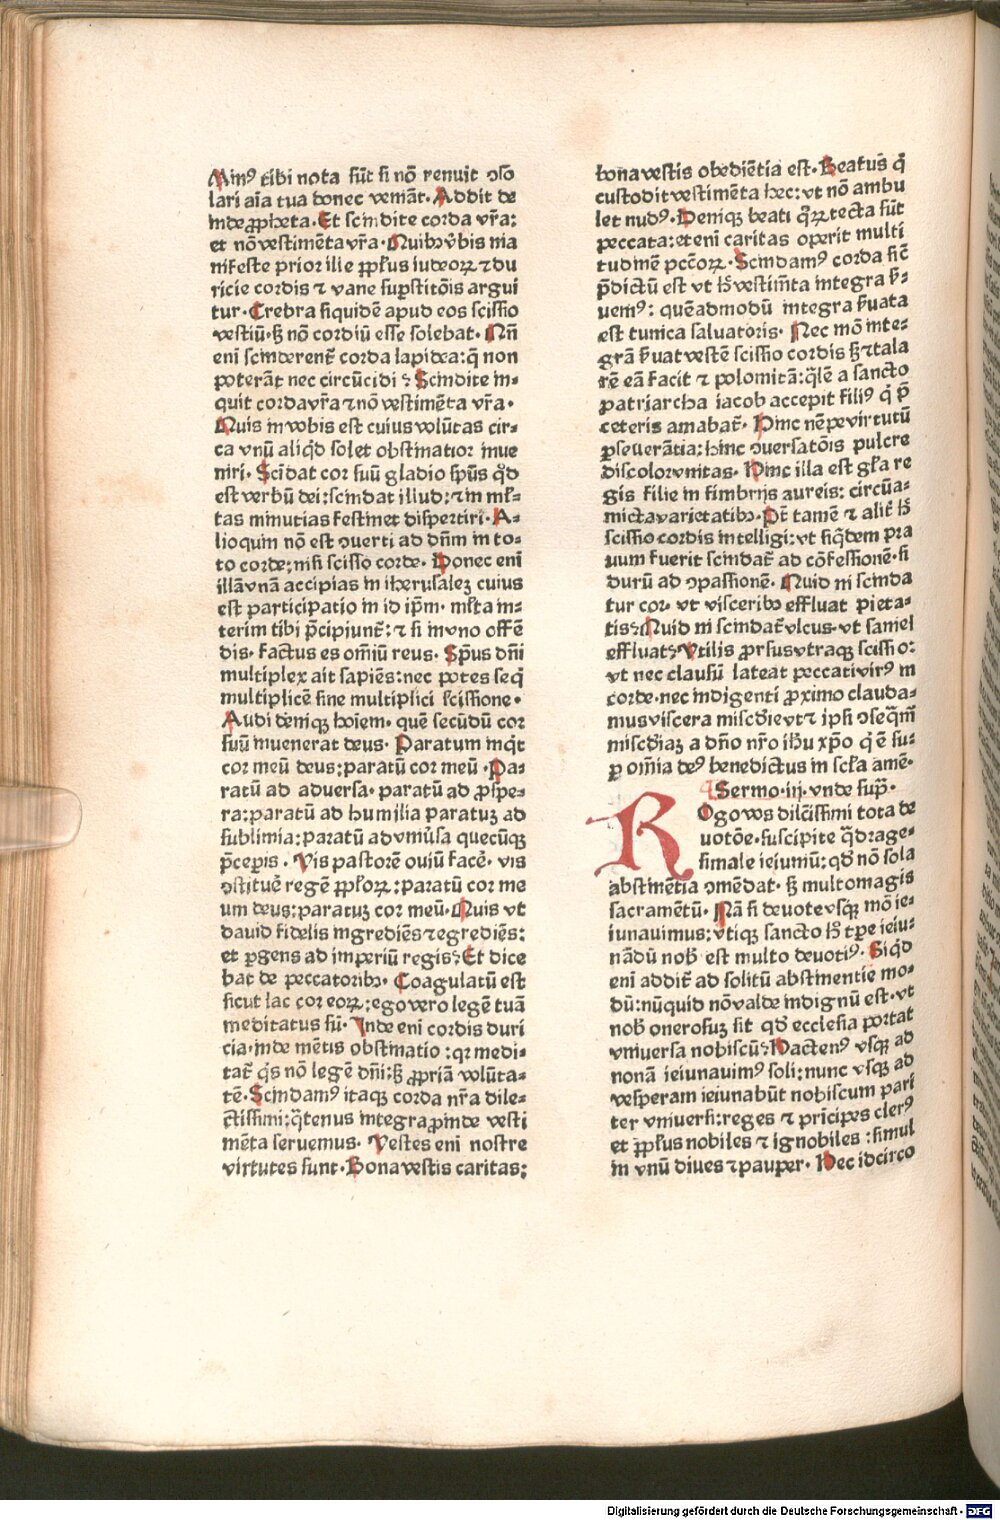 Minꝰ tibi nota sūt si nō renuit ↄso
lari aīa tua donec veniāt. Addit de
inde ꝓpheta. Et scindite corda vr̄a:
et nō vestimēta vr̄a. Quibꝫ v̄bis ma
nifeste prior ille ppl̄us iudeoꝝ ⁊ du
ricie cordis ⁊ vane suꝑstitōis argui
tur. Crebra siquidē apud eos scissio
vestiū. sꝫ nō cordiū esse solebat. Nā
eni scinderent̄ corda lapidea: q̄ non
poterāt nec circūcidi? Scindite in-
quit corda vr̄a ⁊ nō vestimēta vr̄a.
Quis in vobis est cuius volūtas cir-
ca vnū aliq̄d solet obstinatior inue
niri. Scīdat cor suū gladio sp̄us q̄d
est verbū dei: scindat illud: ⁊ in ml̄-
tas minutias festinet dispertiri. A-
lioquin nō est ↄuerti ad dn̄m in to-
to corde: nisi scisso corde. Donec eni
illā vnā accipias in iherusalez cuius
est participatio in id ip̄m. ml̄ta in-
terim tibi p̄cipiunt̄: ⁊ si in vno offē
dis. factus es om̄iū reus. Sp̄us dn̄i
multiplex ait sapiēs: nec potes seq̄
multiplicē sine multiplici scissione.
Audi deniqꝫ hoīem. quē secūdū cor
suū inuenerat deus. Paratum inq̄t
cor meū deus: paratū cor meū. Pa-
ratū ad aduersa. paratū ad ꝓspe-
ra: paratū ad humilia paratuꝫ ad
sublimia: paratū ad vniūsa quecūqꝫ
p̄ceꝑis. Vis pastorē ouiū facē. vis
ↄstituē regē ppl̄oꝝ: paratū cor me
um deus: paratuꝫ cor meū. Quis vt
dauid fidelis ingrediēs ⁊ egrediēs:
et ꝑgens ad imperiū regis? Et dice
bat de peccatoribꝫ. Coagulatū est
sicut lac cor eoꝝ: ego vero legē tuā
meditatus sū. Inde eni cordis duri
cia. inde mētis obstinatio: qꝛ medi-
tat̄ q̄s nō legē dn̄i: sꝫ ꝓpriā volūta-
tē. Scindamꝰ itaqꝫ corda nr̄a dile-
ctissimi: q̄tenus integra ꝓinde vesti
mēta seruemus. Vestes eni nostre
virtutes sunt. Bona vestis caritas:
bona vestis obediētia est. Beatus q̄
custodit vestimēta hec: vt nō ambu
let nudꝰ. Deniqꝫ beati q̄ꝝ tecta sūt
peccata: et eni caritas operit multi
tudinē pcc̄oꝝ. Scindamꝰ corda sic̄
p̄dictū est vt hꝫ vestim̄ta integra s̄-
uemꝰ: quēadmodū integra s̄uata
est tunica saluatoris. Nec mō inte-
grā s̄uat vestē scissio cordis sꝫ ⁊ tala
rē eā facit ⁊ polomitā: q̄lē a sancto
patriarcha iacob accepit filiꝰ q̄ p̄
ceteris amabat̄. Hinc nēpe virtutū
ꝑseuerātia: hinc ↄuersatōis pulcre
discolor vnitas. Hinc illa est gl̄a re
gis filie in fimbrijs aureis: circūa-
micta varietatibꝫ. Pt̄ tamē ⁊ alit̄ hꝫ
scissio cordis intelligi: vt siq̄dem pra
uum fuerit scindat̄ ad cōfessionē. si
durū ad ↄpassionē. Quid ni scinda
tur cor. vt visceribꝫ effluat pieta-
tis? Quid ni scindat̄ vlcus. vt sanies
effluat? Vtilis ꝓrsus vtraqꝫ scissio:
vt nec clausū lateat peccati virꝰ in
corde. nec indigenti ꝓximo clauda-
mus viscera misc̄die vt ⁊ ipsi ↄseq̄m̄
misc̄diaꝫ a dn̄o nr̄o ihū xp̄o q̄ ē su-
ꝑ om̄ia deꝰ benedictus in scl̄a amē.
Sermo. iij. vnde supͣ.
Rogo vos dilc̄issimi tota de
uotōe. suscipite q̄drage-
simale ieiuniū: qd̄ nō sola
abstinētia ↄmēdat. sꝫ multo magis
sacramētū. Nā si deuote vsqꝫ mō ie-
iunauimus: vtiqꝫ sancto hꝫ tꝑe ieiu-
nādū nob̄ est multo deuotiꝰ. Siq̄d
eni addit̄ ad solitū abstinentie mo-
dū: nūquid nō valde indignū est. vt
nob̄ onerosuꝫ sit qd̄ ecclesia portat
vniuersa nobiscū? Hactenꝰ vsqꝫ ad
nonā ieiunauimꝰ soli: nunc vsqꝫ ad
vesperam ieiunabūt nobiscum pari
ter vniuersi: reges ⁊ prīcipes clerꝰ
et ppl̄us nobiles ⁊ ignobiles: simul
in vnū diues ⁊ pauper. Hec idcirco
Digitalisierung gefördert durch die Deutsche Forschungsgemeinschaft - DFG